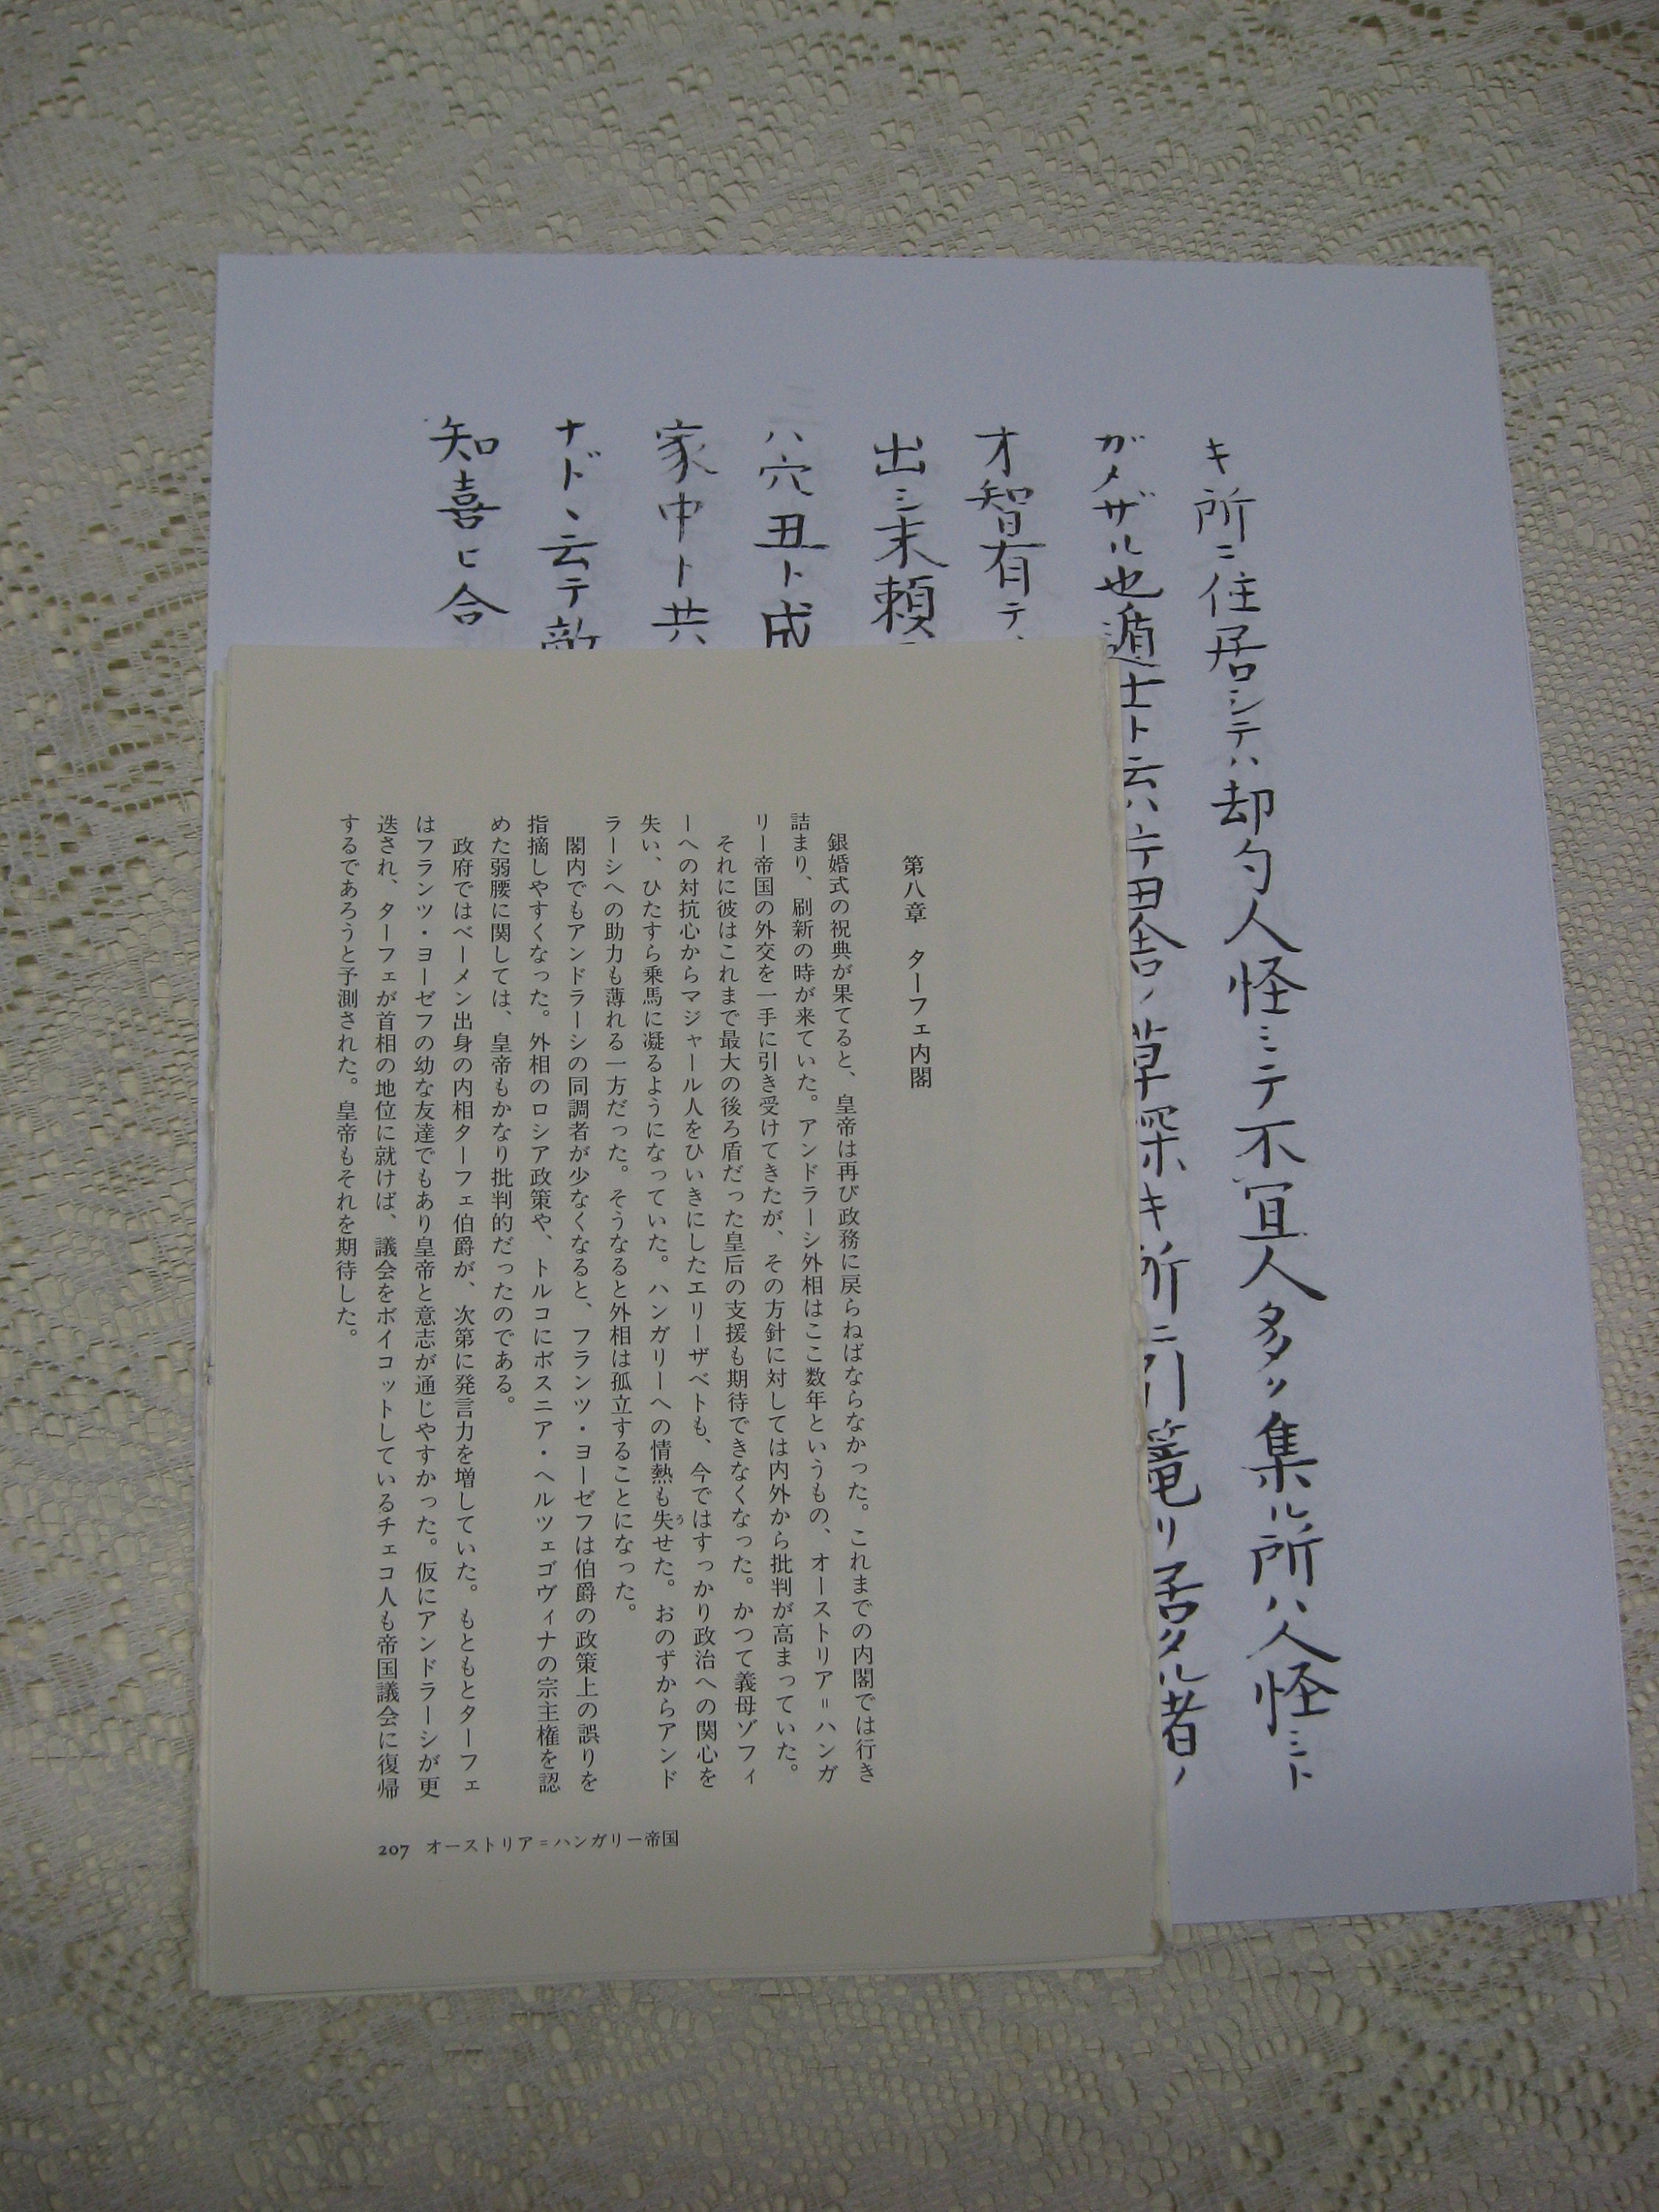 キ所ニ住居シテハ却勺人怪ミテ不宜人多ク集ル所ハ人怪ミト
ガメザル也遁士ト云ハ片田舎ノ草深キ所ニ引篭リ居タル者ノ
才智有テ
出シ末頼
ハ穴丑ト成
家中ト共
ナドヽ云テ敵
知喜ヒ合
第八章　ターフェ内閣
　銀婚式の祝典が果てると、皇帝は再び政務に戻らねばならなかった。これまでの内閣では行き
詰まり、刷新の時が来ていた。アンドラーシ外相はここ数年というもの、オーストリア＝ハンガ
リー帝国の外交を一手に引き受けてきたが、その方針に対しては内外から批判が高まっていた。
　それに彼はこれまで最大の後ろ盾だった皇后の支援も期待できなくなった。かつて義母ゾフィ
ーへの対抗心からマジャール人をひいきにしたエリーザベトも、今ではすっかり政治への関心を
失い、ひたすら乗馬に凝るようになっていた。ハンガリーへの情熱も失せた。おのずからアンド
ラーシへの助力も薄れる一方だった。そうなると外相は孤立することになった。
　閣内でもアンドラーシの同調者が少なくなると、フランツ・ヨーゼフは伯爵の政策上の誤りを
指摘しやすくなった。外相のロシア政策や、トルコにボスニア・ヘルツェゴヴィナの宗主権を認
めた弱腰に関しては、皇帝もかなり批判的だったのである。
　政府ではベーメン出身の内相ターフェ伯爵が、次第に発言力を増していた。もともとターフェ
はフランツ・ヨーゼフの幼な友達でもあり皇帝と意志が通じやすかった。仮にアンドラーシが更
迭され、ターフェが首相の地位に就けば、議会をボイコットしているチェコ人も帝国議会に復帰
するであろうと予測された。皇帝もそれを期待した。
207　オーストリア＝ハンガリー帝国